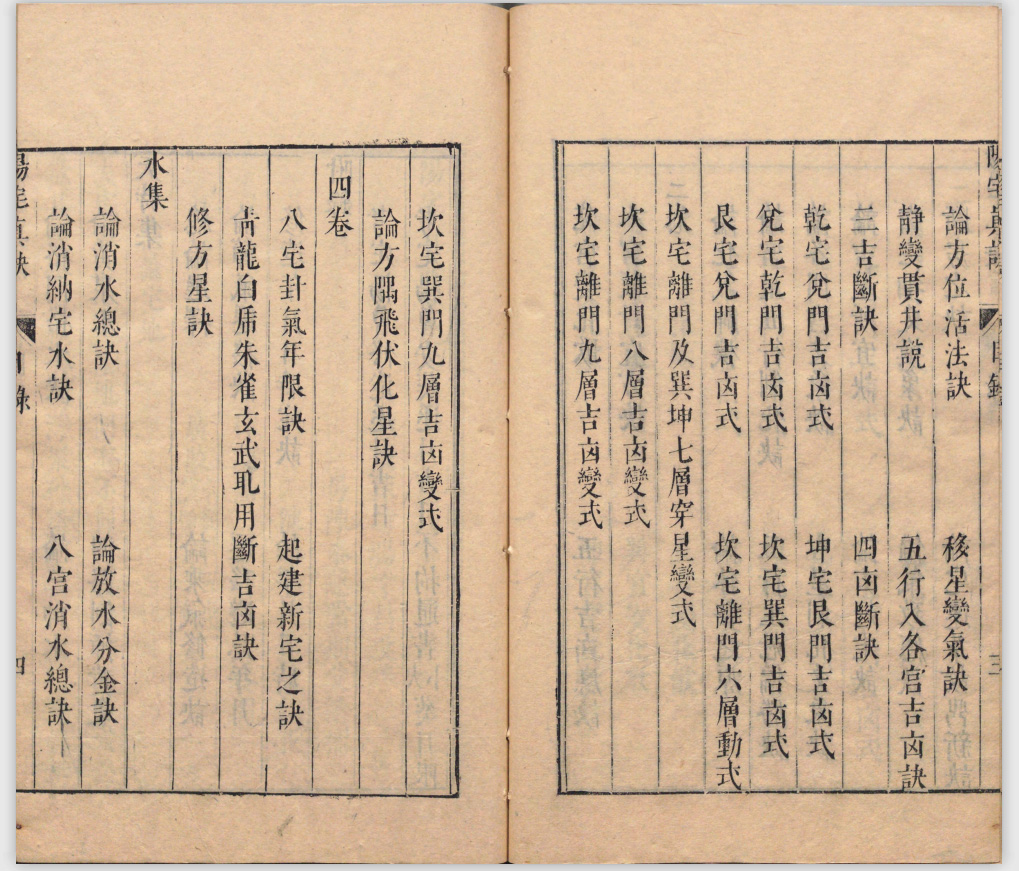 陽宅真訣 目錄 三
論方位活法訣 移星變氣訣
靜變貫井説 五行入各宮吉凶訣
三吉斷訣 四凶斷訣
乾宅兌門吉凶式 坤宅艮門吉凶式
兌宅乾門吉凶式 坎宅巽門吉凶式
艮宅兌門吉凶式 坎宅離門六層動式
坎宅離門及巽坤七層穿星變式
坎宅離門八層吉凶變式
坎宅離門九層吉凶變式
坎宅巽門九層吉凶變式
論方隅飛伏化星訣
四卷
八宅封氣年限訣 起建新宅之訣
青龍白虎朱雀玄武耴用斷吉凶訣
修方星訣
水集
論消水總訣 論放水分金訣
論消納宅水訣 八宮消水總訣
陽宅真訣 目錄 四